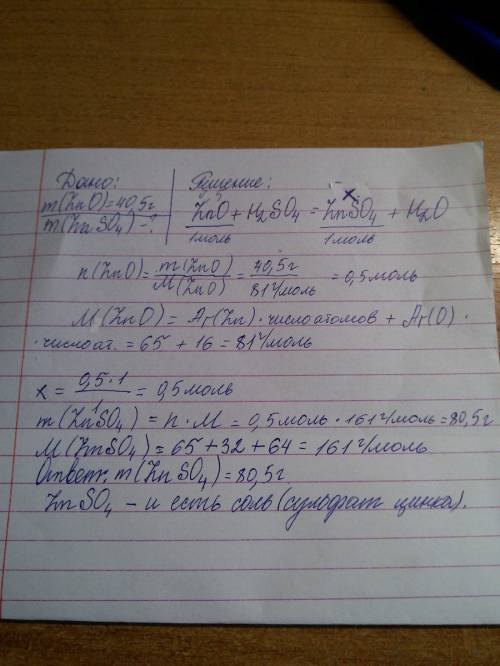 Дано: Решение:
m(ZnO)=40,5г x
m(ZnSO₄)-? ZnO + H₂SO₄ = ZnSO₄ + H₂O
1моль 1моль
n(ZnO)= m(ZnO)/M(ZnO) = 40,5г/81г/моль = 0,5моль
M(ZnO) = Ar(Zn)·число атомов + Ar(O)·
·число ат. = 65 + 16 = 81г/моль
x = 0,5·1/1 = 0,5моль
m(ZnSO₄) = n·M = 0,5моль·161г/моль=80,5г
M(ZnSO₄)=65+32+64=161г/моль
Ответ: m(ZnSO₄)=80,5г
ZnSO₄ – и есть соль (сульфат цинка).